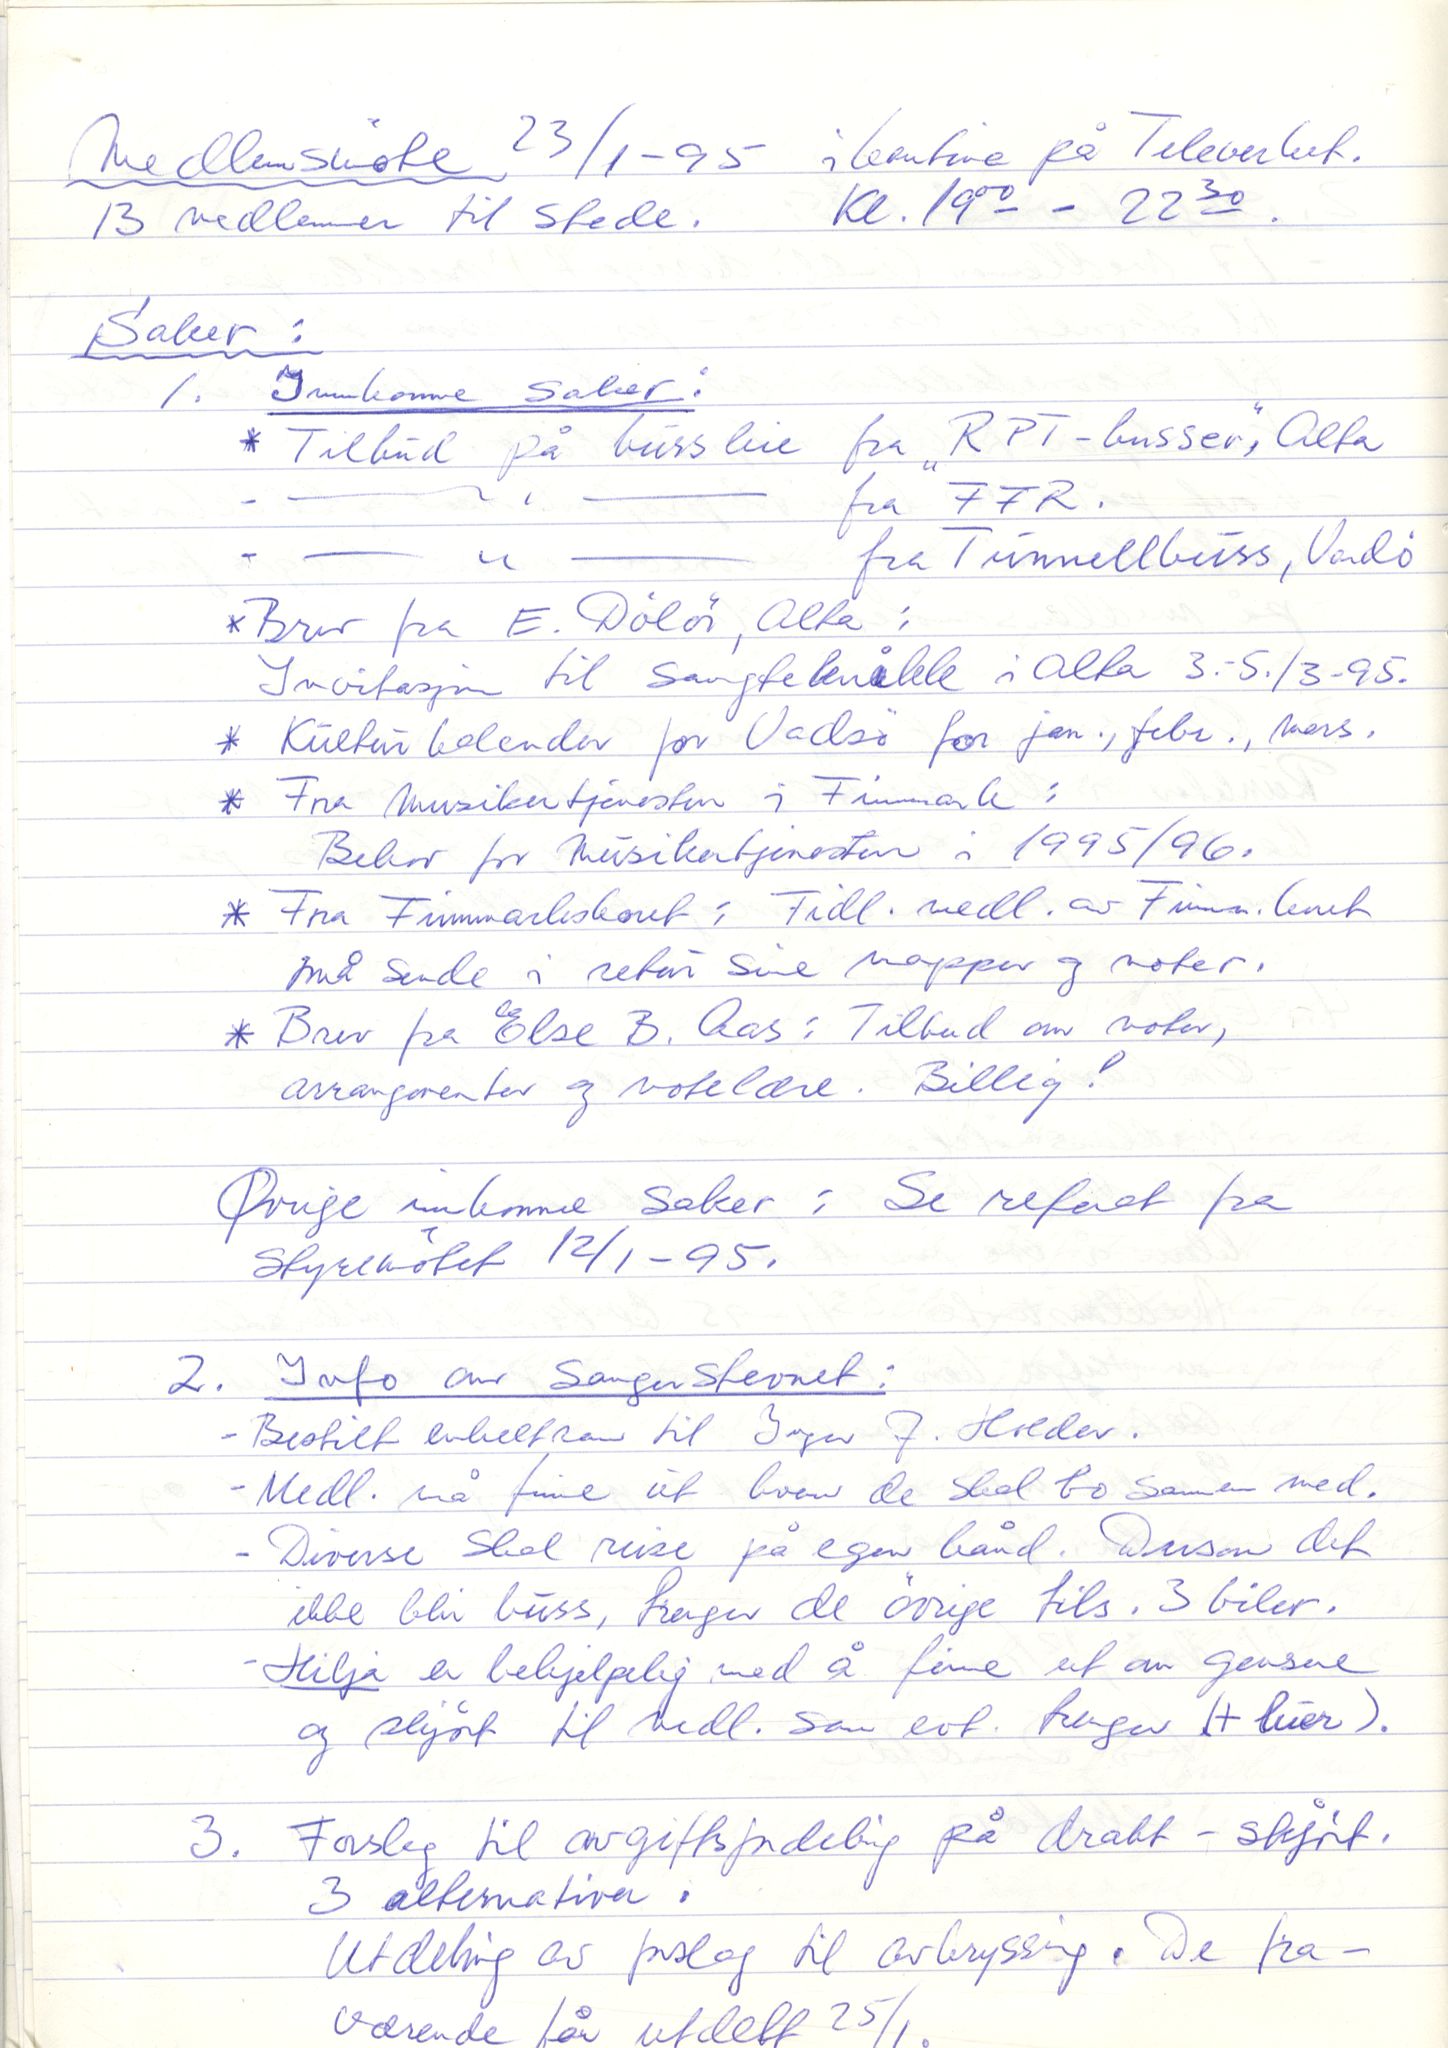 Medlemsmöte 23/1-95 i kantine på Televerket.
13 medlemmer til stede. Kl. 19⁰⁰ - 22³⁰.
Saker:
1. Innkomne saker:
* Tilbud på bussleie fra „RPT-busser", Alta
- —— " —— fra FFR.
- —— " —— fra Tunnellbuss, Vardö
* Brev fra E. Dölör, Alta:
Invitasjon til sangteknikk i Alta 3.-5./3-95.
* Kulturkalender for Vadsö for jan., febr., mars.
* Fra Musikertjenesten i Finnmark:
Behov for Musikertjenesten i 1995/96.
* Fra Finnmarkskoret: Tidl. medl. av Finnm.koret
må sende i retur sine mapper og noter.
* Brev fra Else B. Aas: Tilbud om noter,
arrangementer og notelære. Billig!
Øvrige innkomne saker: Se referat fra
styremötet 12/1-95.
2. Info om Sangerstevnet:
- Bestilt enkeltrom til Inger J. Holder.
- Medl. må finne ut hvem de skal bo sammen med.
- Diverse skal reise på egen hånd. Dersom det
ikke blir buss, trenger de övrige tils. 3 biler.
- Hilja er behjelpelig med å finne ut om gensere
og skjört til medl. som evt. trenger (+ luer).
3. Forslag til avgiftsfordeling på drakt - skjört.
3 alternativer.
Utdeling av forslag til avkryssing. De fra-
værende får utdelt 25/1.